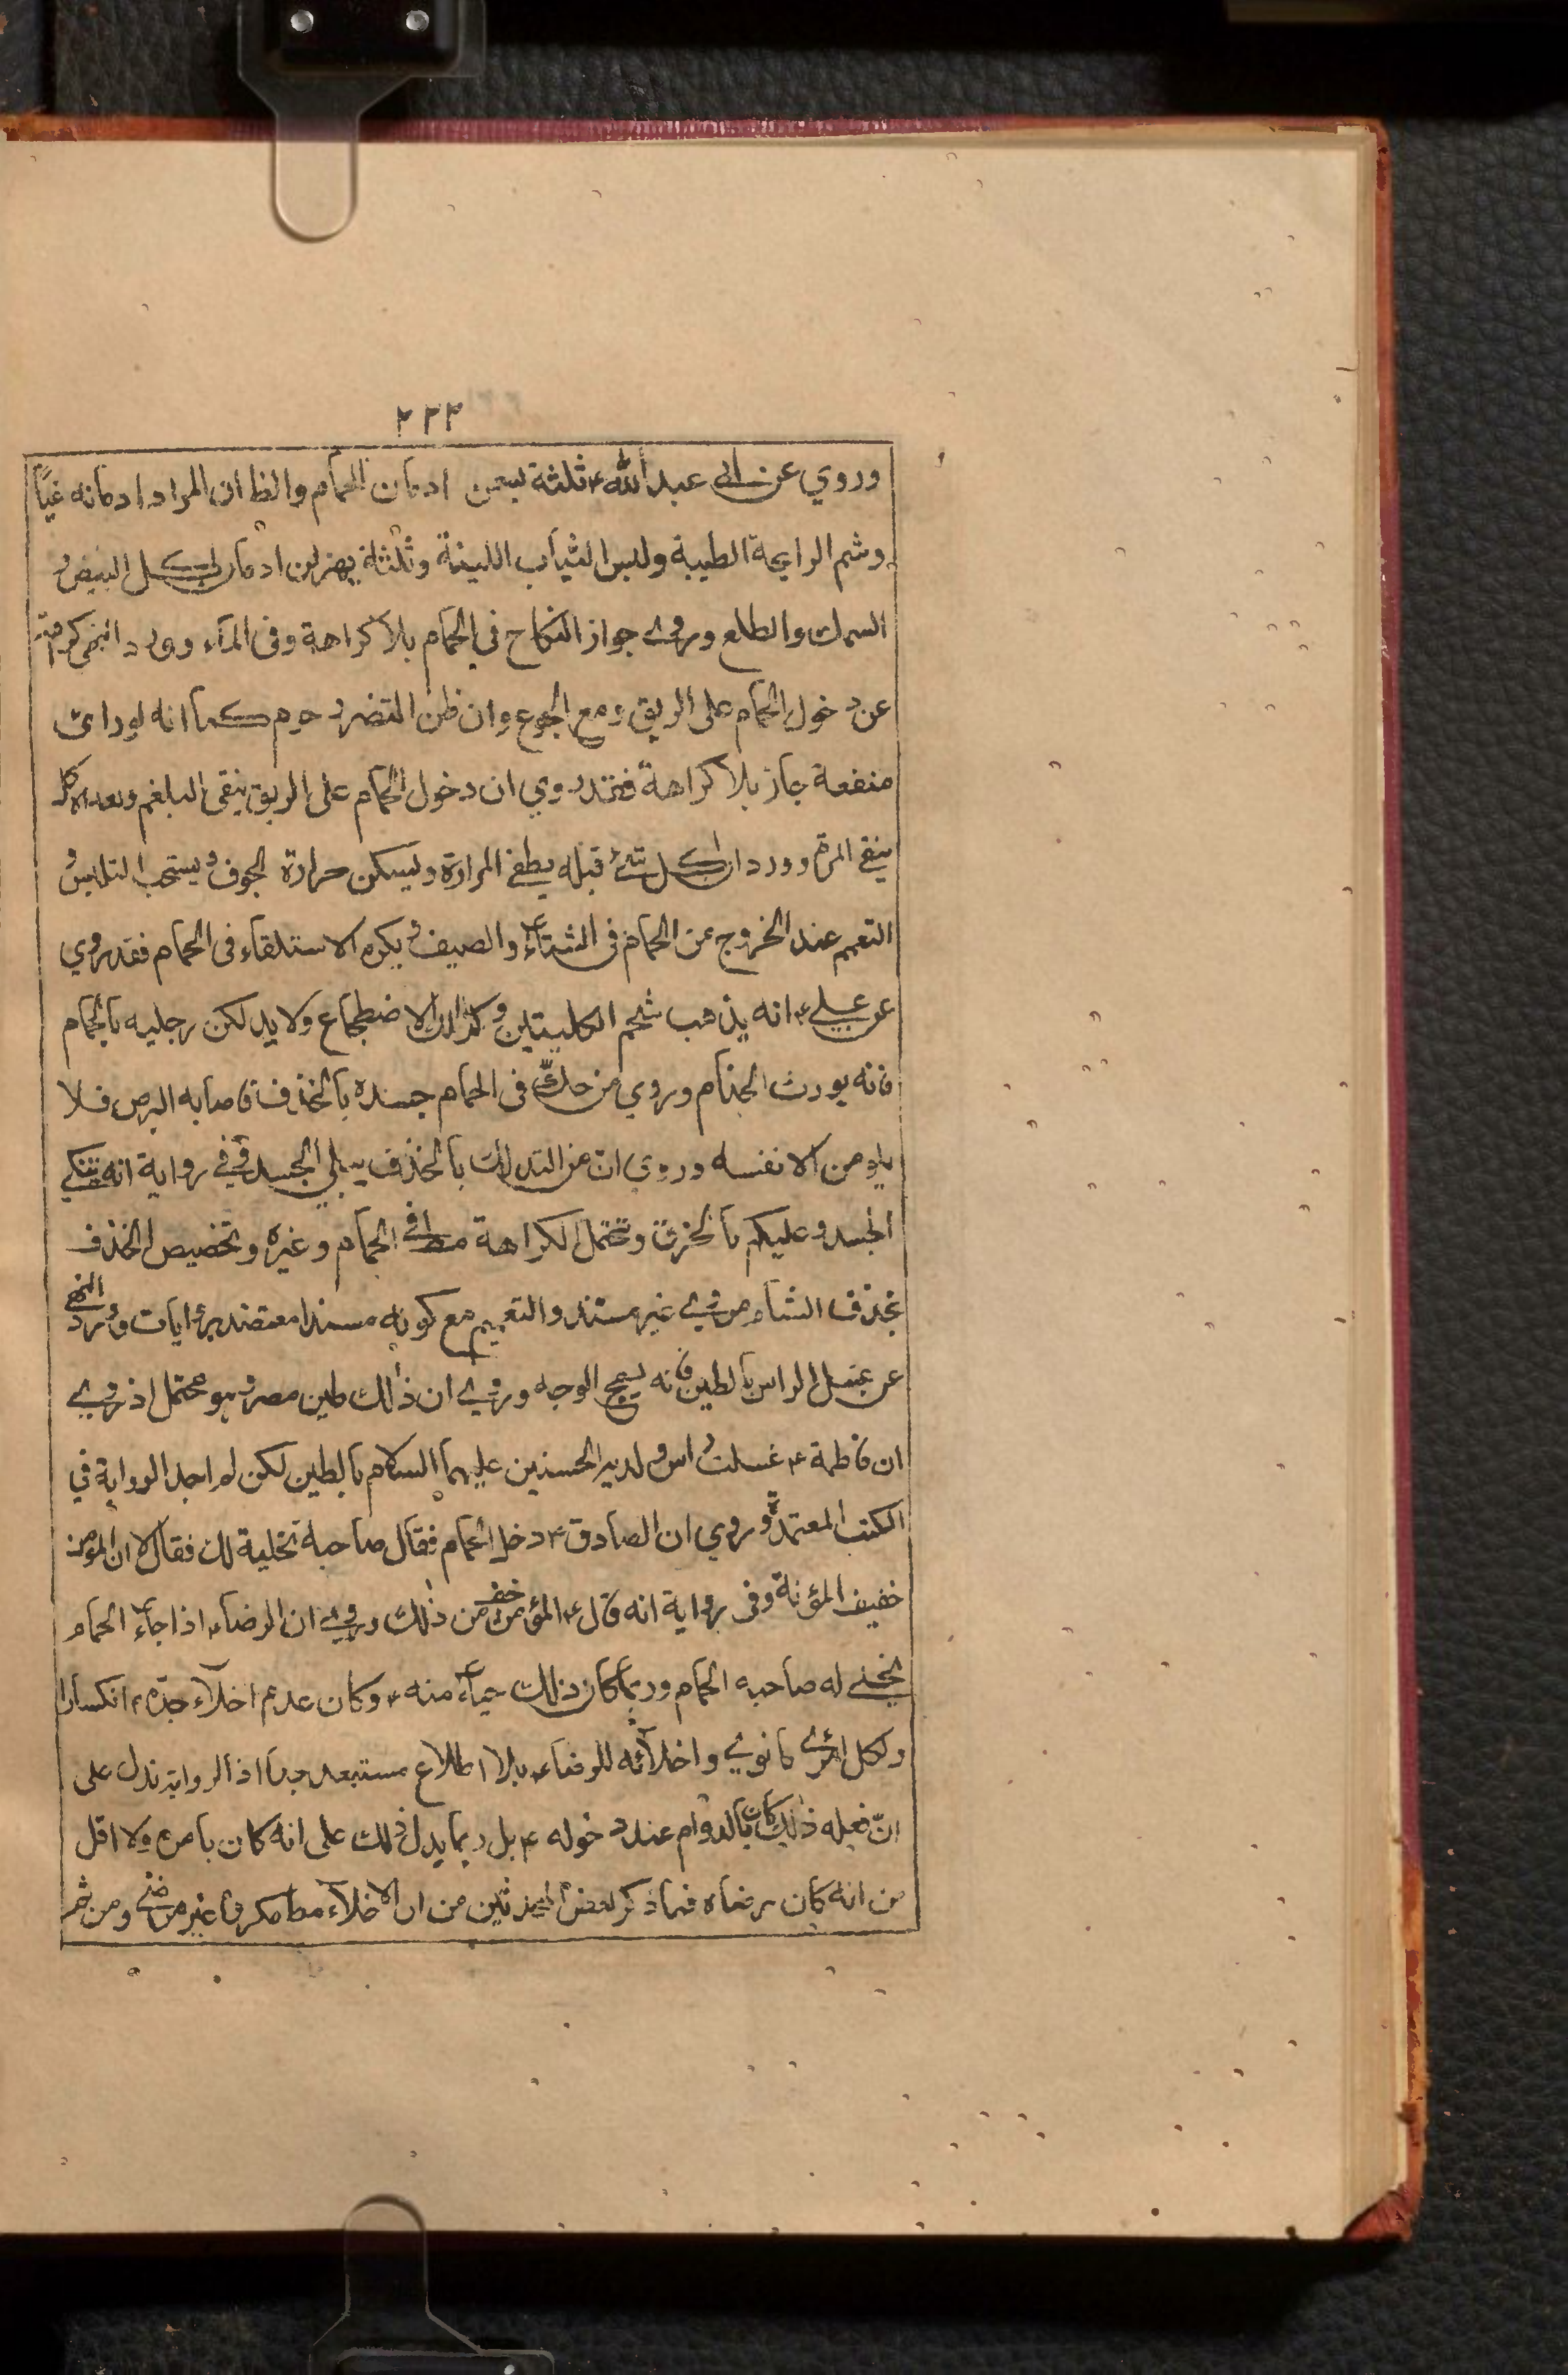 ٢٢٣
وروي عن أبي عبد الله ع ثلثة يسمن ادمان الحمام والظ ان المراد ادمانه غبّا
وشم الرايحة الطيبة ولبس الثياب اللينة وثلثة يهزلن ادمان اكل البيض و
السمك والطلع وروي جواز النكاح في الحمام بلا كراهة وفي المآء وورد النهي
عن دخول الحمام على الريق ومع الجوع وان ظن التضرر حرم كما انه لو رأى
منفعة جاز بلا كراهة فقد روي ان دخول الحمام على الريق ينقى البلغم وبعد الاكل
ينقي المرة وورد ان اكل شئ قبله يطفئ المرارة ويسكن حرارة الجوف ويستحب التلبس و
التعمم عند الخروج من الحمام في الشتآء والصيف ويكره الاستلقاء في الحمام فقد روي
عن علي ع انه يذهب شحم الكليتين وكذلك الاضطجاع ولا يدلكن رجليه بالحمام
فانه يورث الجذام وروي من حك في الحمام جسده بالخذف فاصابه البرص فلا
يلومن الا نفسه وروي ان من التدلك بالخذف يبلي الجسد وفي رواية انه ينكي
الجسد وعليكم بالخرق وتحتمل الكراهة مط في الحمام وغيره وتخصيص الخذف
بخذف الشام مروي غير مسند والتعميم مع كونه مسندا معتضد بروايات وورد النهي
عن غسل الراس بالطين فانه يسمج الوجه وروي ان ذلك طين مصر وهو محتمل اذ روي
ان فاطمة ع غسلت راس ولديه الحسنين عليهما السلام بالطين لكن لم اجد الرواية في
الكتب المعتمدة وروي ان الصادق ع دخل الحمام فقال صاحبه نخليه لك فقال لا ان المؤمن
خفيف المؤنة وفي رواية انه قال ع المؤمن خف من ذلك وروي ان الرضا ع اذا جآء الحمام
يخلي له صاحبه الحمام وربما كان ذلك حيآء منه ع وكان عدم اخلآء جده ع انكسارا
ولكل امرئ ما نوى واخلائه للرضاء ع بلا اطلاع مستبعد جدا اذ الرواية تدل على
انّ فعله ذلك كان بالدوام عند دخوله ع بل ربما يدل ذلك على انه كان بامره ولا اقل
من انه كان برضاه فما ذكر بعض المحدثين من ان الاخلآء مط مكروه غير مرضي ومن ثم